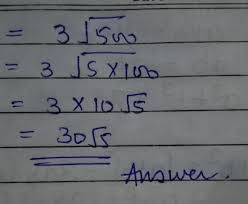 = 3√500
= 3 √5×100
= 3 × 10√5
= 30√5
Answer.